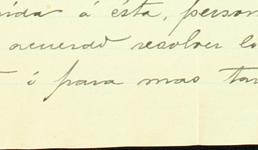 nida á ésta, person
acuerdo resolver lo
ó para mas tar